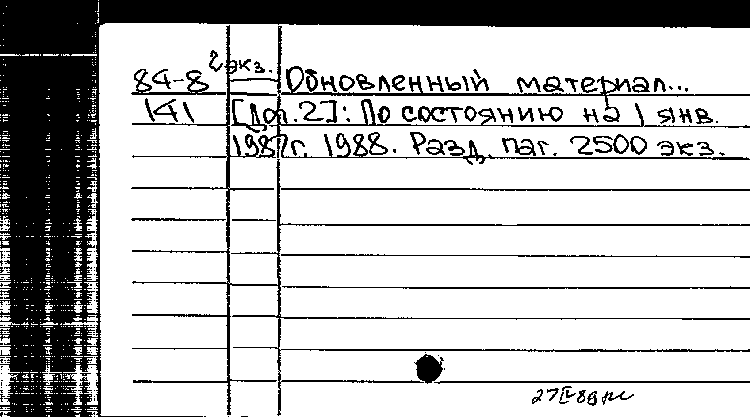 2 экз.
84-8 Обновленный материал...
141 [Доп.2]: По состоянию на 1 янв.
1987г. 1988. Разд. паг. 2500 экз.